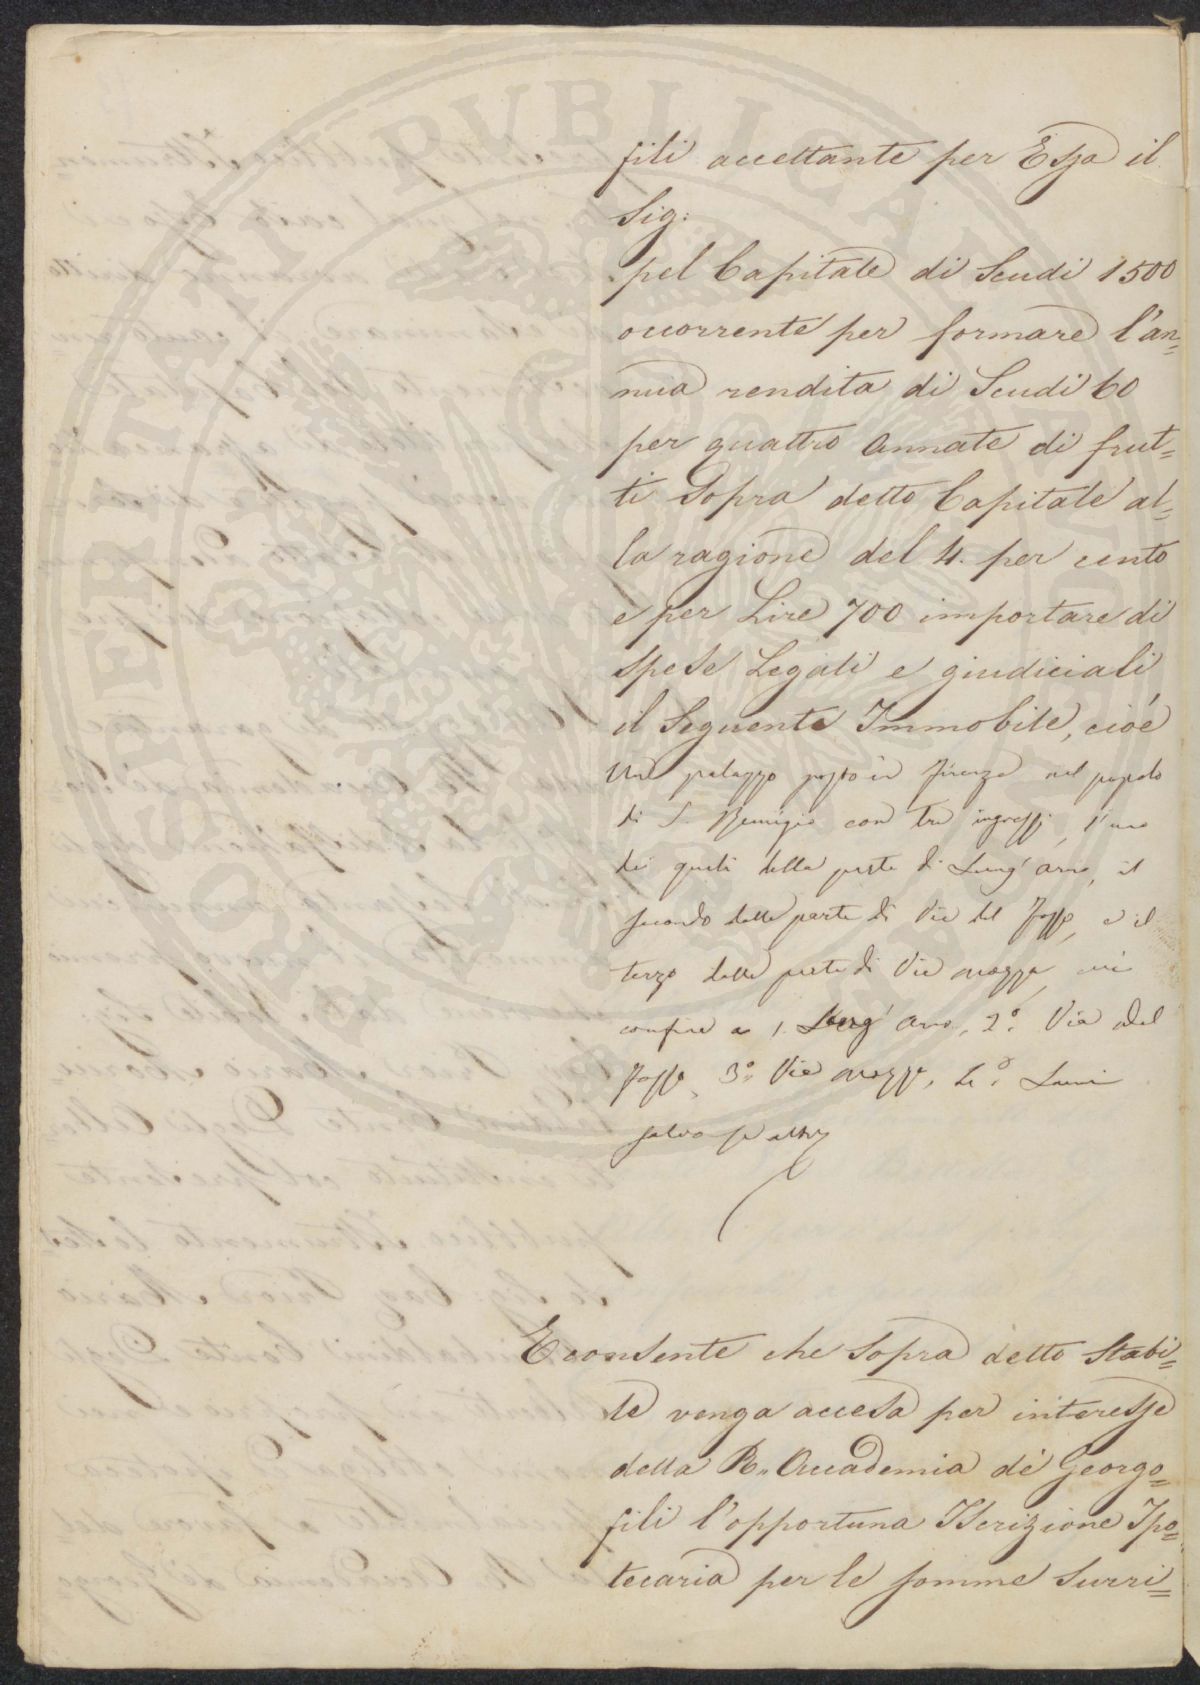 fili accettante per Essa il
Sig:
pel Capitale di Scudi 1500
occorrente per formare l'an=
nua rendita di Scudi 60
per quattro annate di frut=
ti Sopra detto Capitale al=
la ragione del 4. per cento
e per Lire 700 importare di
Spese Legali e giudiciali
il Seguente Immobile, cioè
Un palazzo posto in Firenze nel popolo
di S. Remigio con tre ingressi, l'uno
dei quali dalla parte di Lung'arno, il
secondo dalla parte di Via del Fosso, e il
terzo dalla parte di Via mozza, cui
confina a 1. Lung'Arno, 2°. Via del
Fosso, 3°. Via mozza, 4°.
salvo se altri
E consente che Sopra detto Stabi=
le venga accesa per interesse
della R. Accademia dei Georgo=
fili l'opportuna Iscrizione Ipo=
tecaria per le somme Surri=
PUBLICA